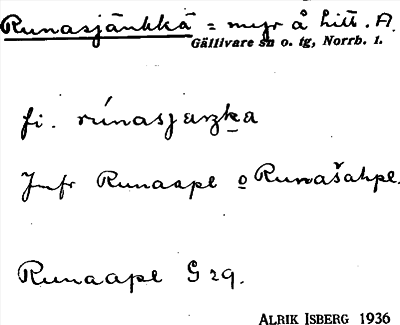 Runasjänkkä = myr å hitt. A.
Gällivare sn o. tg, Norrb. l.
fi. rúnasjaŋka
Jmfr Runaape o Runašahpe.
Runaape G 29.
ALRIK ISBERG 1936